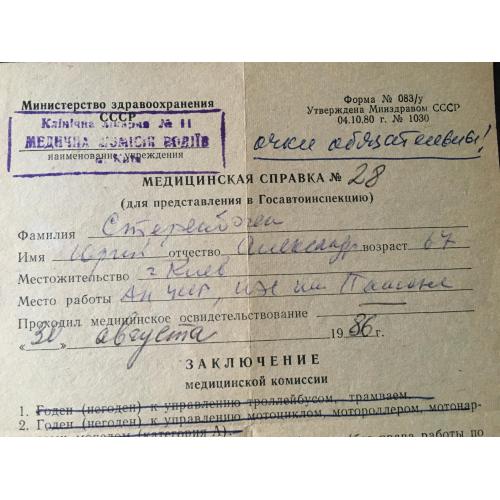 Министерство здравоохранения
СССР
Клінічна лікарня № 11
МЕДИЧНА КОМІСІЯ ВОДІЇВ
м. Київ
наименование учреждения
Форма № 083/у
Утверждена Минздравом СССР
04.10.80 г. № 1030
очки обязательны!
МЕДИЦИНСКАЯ СПРАВКА № 28
(для представления в Госавтоинспекцию)
Фамилия
Имя Юрий отчество Александр возраст 67
Местожительство г. Киев
Место работы АН УССР, им. Патона
Проходил медицинское освидетельствование
"30" августа 1986 г.
ЗАКЛЮЧЕНИЕ
медицинской комиссии
1. Годен (негоден) к управлению троллейбусом, трамваем.
2. Годен (негоден) к управлению мотоциклом, мотороллером, мотонар-
(категория А).
права работы по